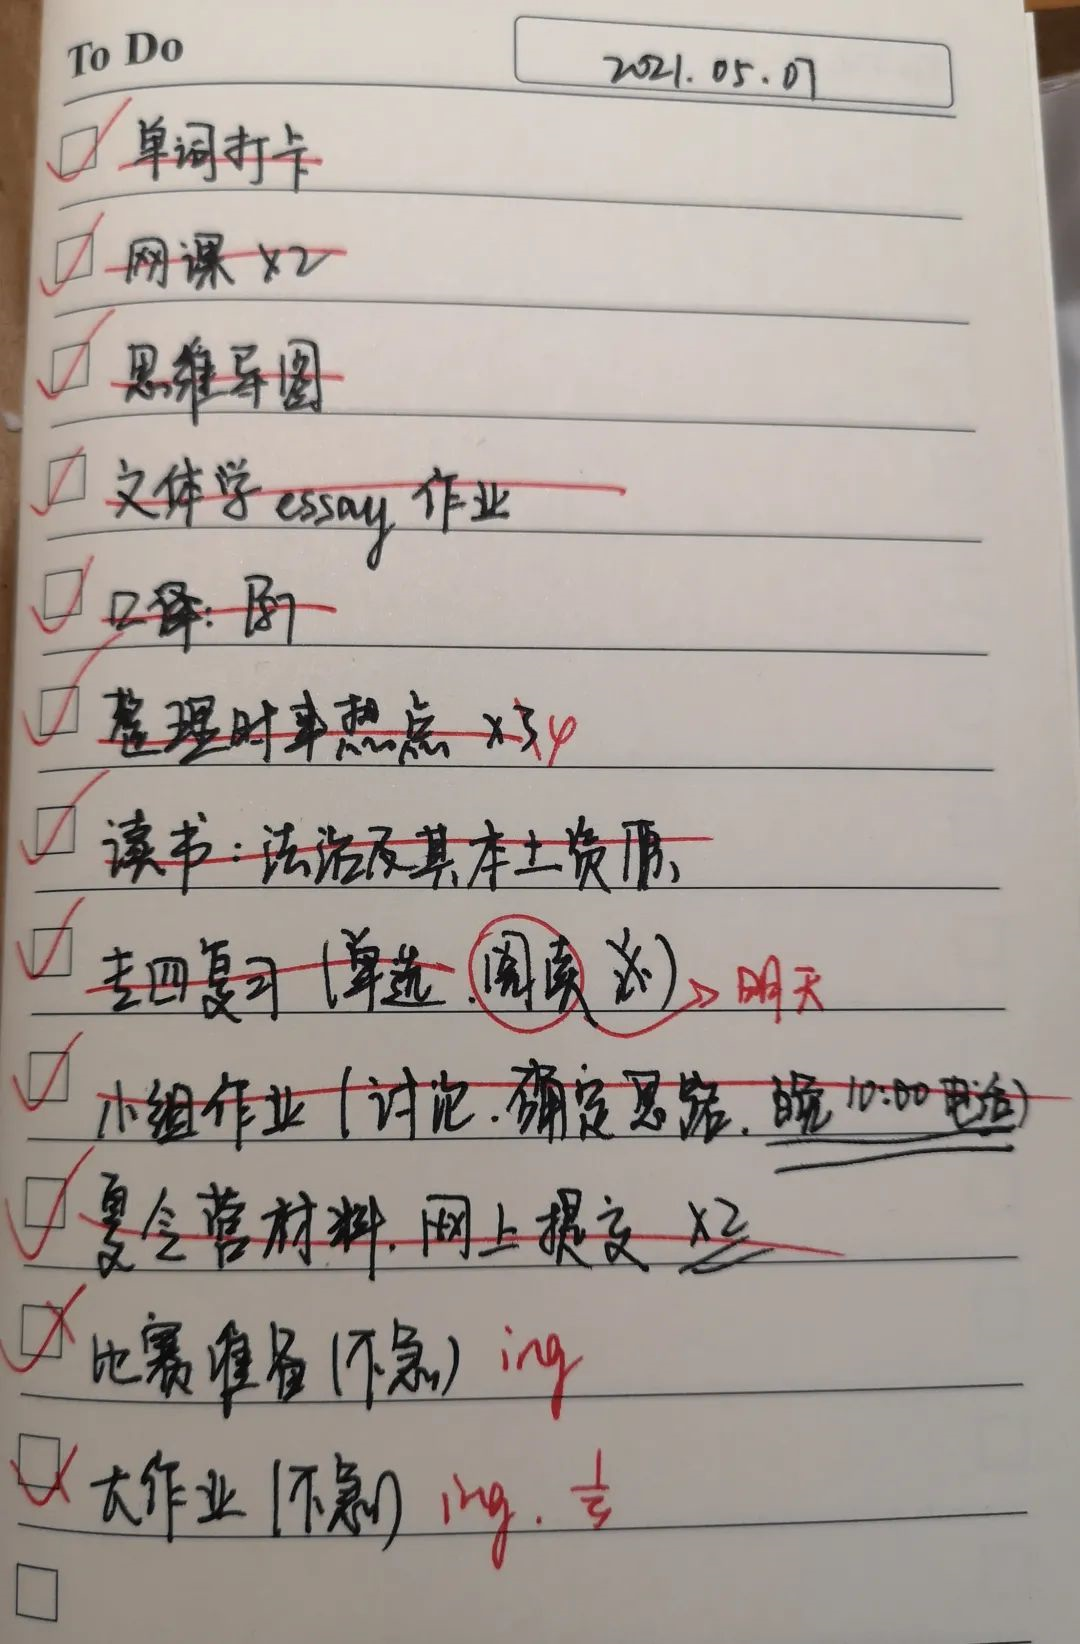 To Do
2021.05.07
单词打卡
网课 ×2
思维导图
文体学 essay 作业
口译:
整理时事热点 ×3 4
读书:法治及其本土资源
专四复习(单选.阅读) → 明天
小组作业(讨论.确定思路.晚10:00电话)
夏令营材料.网上提交 ×2
比赛准备(不急) ing
大作业(不急) ing. 1/3